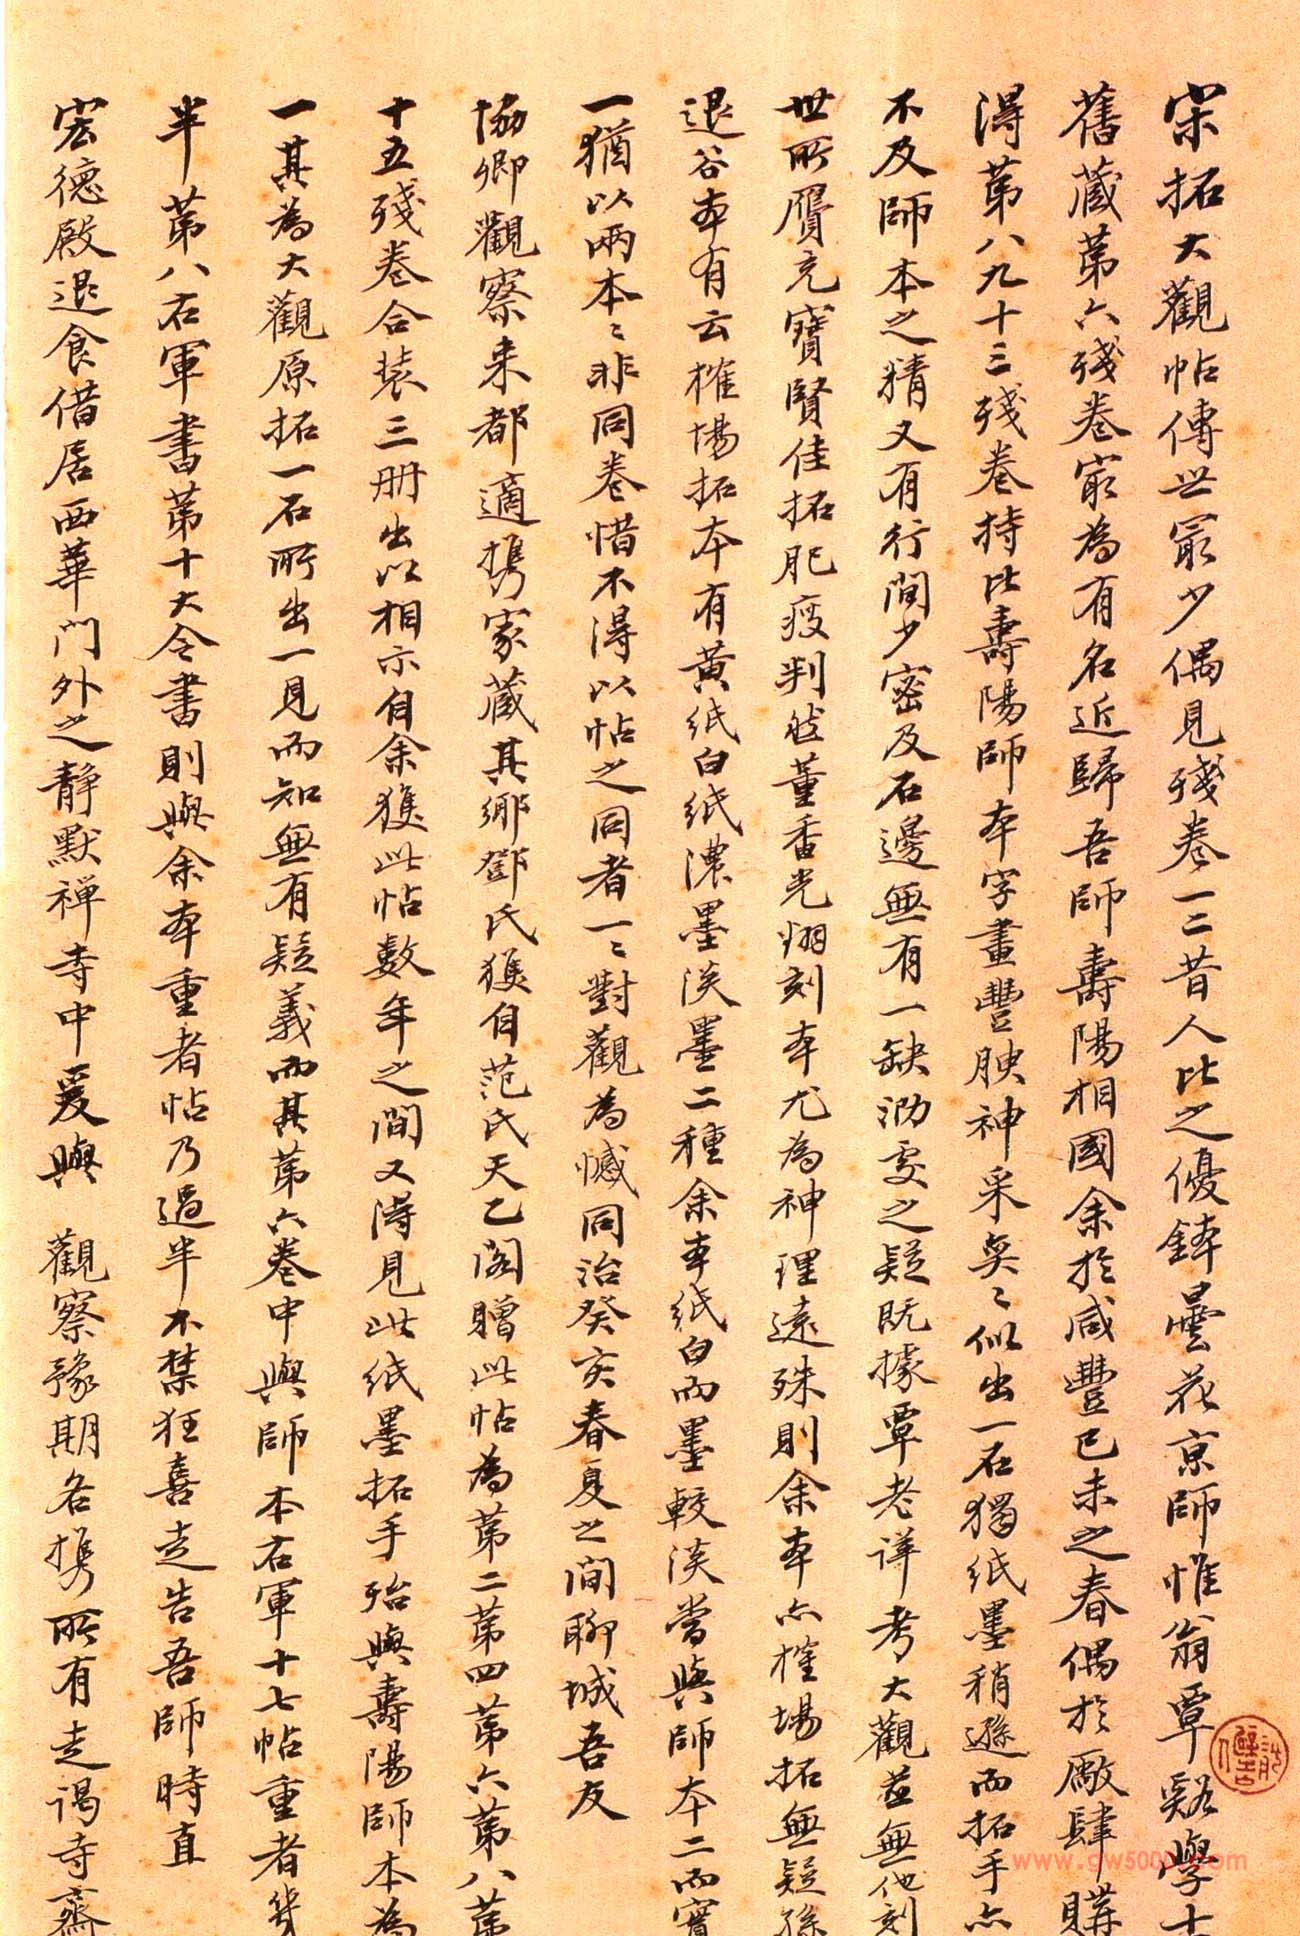 宋拓大觀帖傳世冣少偶見殘卷一二昔人比之優鉢曇花京師惟翁覃谿學士
舊藏第六殘卷冣為有名近歸吾師壽陽相國余於咸豐己未之春偶於廠肆購
得第八九十三殘卷持比壽陽師本字畫豐腴神采奕〻似出一石獨紙墨稍遜而拓手亦
不及師本之精又有行間少密及石邊無有一缺泐處之疑既據覃老詳考大觀並無他刻
世所贗充寶賢佳拓肥瘦判然董香光翊刻本尤為神理遠殊則余本亦榷場拓無疑孫
退谷本有云榷場拓本有黃紙白紙濃墨淡墨二種余本紙白而墨較淡當與師本二而實
一猶以兩本〻非同卷惜不得以帖之同者一〻對觀為憾同治癸亥春夏之間聊城吾友
協卿觀察来都適攜家藏其鄉鄧氏獲自范氏天乙閣贈此帖為第二第四第六第八第
十五殘卷合裝三冊出以相示自余獲此帖數年之間又得見此紙墨拓手殆與壽陽師本為
一其為大觀原拓一石所出一見而知無有疑義而其第六卷中與師本右軍十七帖重者幾
半第八右軍書第十大令書則與余本重者帖乃過半不禁狂喜走告吾師時直
宏德殿退食借居西華門外之靜默禪寺中爰與 觀察豫期各攜所有走謁寺齋
www.gw5000.com